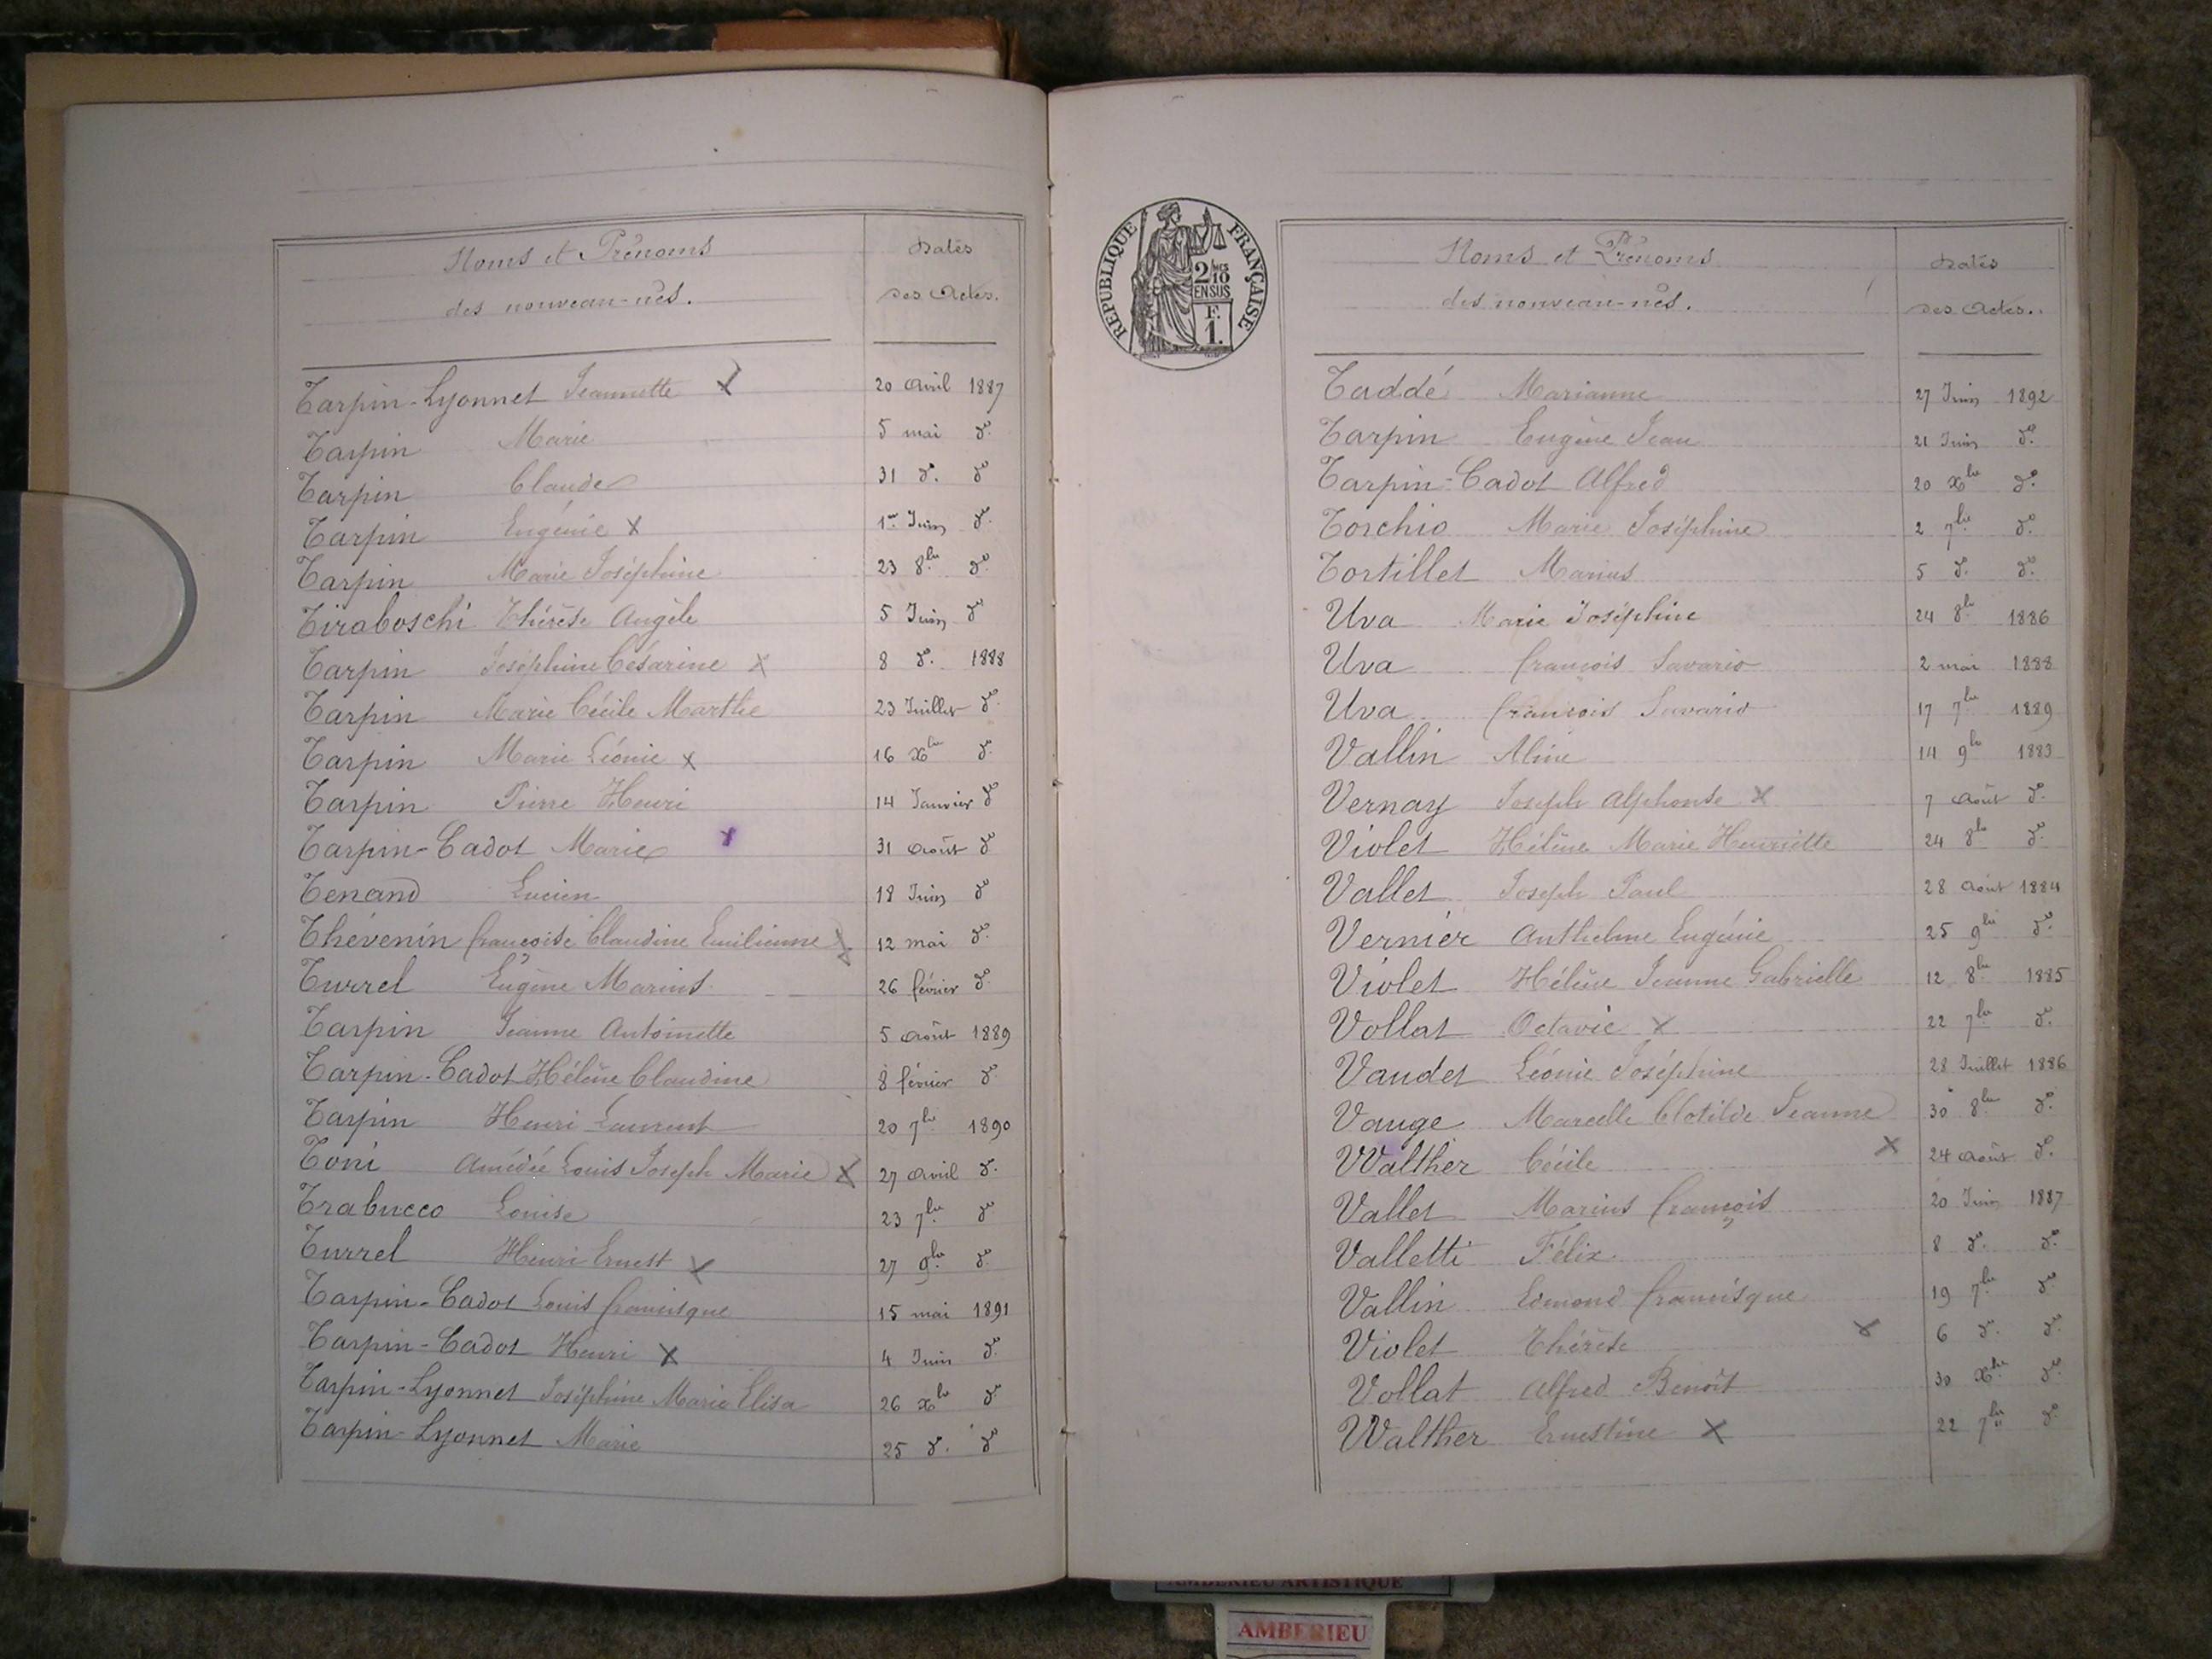 Noms et Prénoms Dates
des nouveau-nés. des Actes.
Tarpin-Lyonnet Jeannette x 20 Avril 1887
Tarpin Marie 5 mai do
Tarpin Claude 31 do do
Tarpin Eugénie x 1er Juin do
Tarpin Marie Joséphine 23 8bre do
Tiraboschi Thérèse Angèle 5 Juin do
Tarpin Joséphine Césarine x 8 do 1888
Tarpin Marie Cécile Marthe 23 Juillet do
Tarpin Marie Léonie x 16 Xbre do
Tarpin Pierre Henri 14 Janvier do
Tarpin-Cadot Marie x 31 Août do
Tenand Lucien 18 Juin do
Thévenin françoise Claudine Emilienne x 12 mai do
Turrel Eugène Marius 26 février do
Tarpin Jeanne Antoinette 5 Août 1889
Tarpin-Cadot Hélène Claudine 8 février do
Tarpin Henri Laurent 20 7bre 1890
Toni Amédée Louis Joseph Marie x 27 Avril do
Trabucco Louise 23 7bre do
Turrel Henri Ernest x 27 9bre do
Tarpin-Cadot Louis francisque 15 mai 1891
Tarpin-Cadot Henri x 4 Juin do
Tarpin-Lyonnet Joséphine Marie Elisa 26 Xbre do
Tarpin-Lyonnet Marie 25 do do
RÉPUBLIQUE FRANÇAISE
2/10
EN SUS
F.
1.
Noms et Prénoms Dates
des nouveau-nés. des Actes.
Taddé Marianne 27 Juin 1892
Tarpin Eugène Jean 21 Juin do
Tarpin-Cadot Alfred 20 Xbre do
Torchio Marie Joséphine 2 7bre do
Tortillet Marius 5 do do
Uva Marie Joséphine 24 8bre 1886
Uva françois Savario 2 mai 1888
Uva françois Savario 17 7bre 1889
Vallin Aline 14 9bre 1883
Vernay Joseph Alphonse x 7 Août do
Violet Hélène Marie Henriette 24 8bre do
Vallet Joseph Paul 28 Août 1884
Vernier Anthelme Eugénie 25 9bre do
Violet Hélène Jeanne Gabrielle 12 8bre 1885
Vollat Octavie x 22 7bre do
Vaudet Léonie Joséphine 28 Juillet 1886
Vauge Marcelle Clotilde Jeanne 30 8bre do
Walther Cécile x 24 Août do
Vallet Marius françois 20 Juin 1887
Valletti Félix 8 do do
Vallin Edmond francisque 19 7bre do
Violet Thérèse x 6 do do
Vollat Alfred Benoît 30 Xbre do
Walther Ernestine x 22 7bre do
AMBERIEU ARTISTIQUE
AMBERIEU